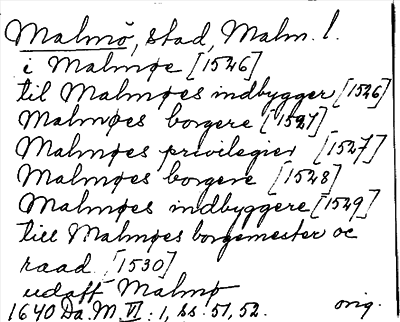 Malmö, stad, Malm. l.
i Malmøe [1526]
til Malmøes indbygger [1526]
Malmøes borgere [1527]
Malmøes privilegier [1527]
Malmøes borgere [1528]
Malmøes indbyggere [1529]
till Malmøes borgemester oc
raad [1530]
udaff Malmø
1640 Da. M. VI: 1, ss. 51, 52. orig.